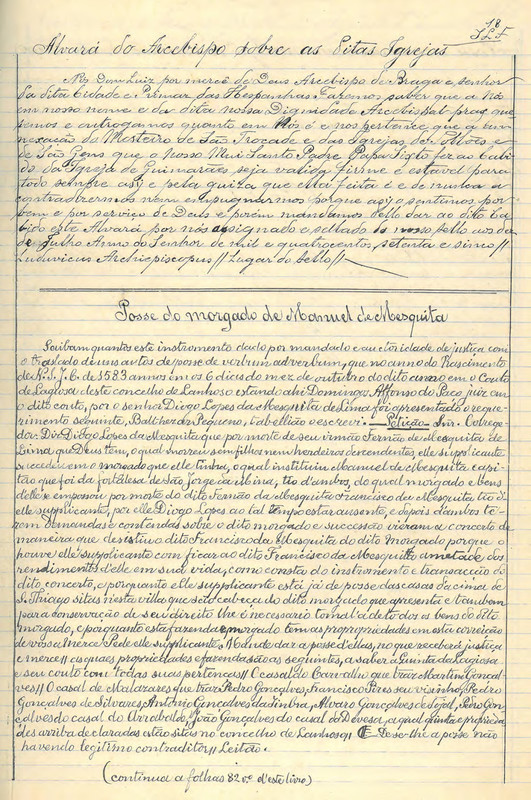 78
Alvará do Arcebispo sobre as Ditas Igrejas
Nós Dom Luiz por mercê de Deus Arcebispo de Braga e senhor
da dita Cidade e Primaz das Hespanhas Fazemos saber que a Nós
em nosso nome e da dita nossa Dignidade Arcebispal praz que
damos e outrogamos quanto em Nós é e nos pertence que a
nexação do Mosteiro de São Trocade e das Igrejas de
de São Gens que o Nosso Mui Santo Padre Papa Sixto fez ao Cabi
do da Igreja de Guimarães seja valida firme e estavel para
todo sempre asy e pela guiza que lhes feita é e de nunca a
contradizermos nem empugnarmos porque asy o sentimos por
bem e por serviço de Deus e porém mandamos dello dar ao dito Ca
bido este Alvará por nós assignado e sellado do nosso sello aos
de Julho Anno do Senhor de mil e quatrocentos, setenta e sinco //
Ludovicus Archiepiscopus // Lugar do Sello //
Posse do morgado de Manuel de Mesquita
Saibam quantos este instromento dado por mandado e auctoridade de justiça com
o traslado de uns autos de posse de verbum adverbum, que no anno do Nascimento
de N. S. J. C. de 1583 annos in os 6 dias do mez de outubro do dito anno em o Couto
de Lagiosa deste concelho de Lanhoso estando ahi Domingos Affonso do Paço juiz em
o dito couto, por o senhor Diogo Lopes da Mesquita de Lima foi apresentado o reque-
rimento seguinte, Balthezar Pequeno, tabellião o escrevi. — Petição — Snr. Correge-
dor. Diz Diogo Lopes da Mesquita que por morte de seu irmão Fernão de Mesquita de
Lima que Deus tem, o qual morreu sem filhos nem herdeiros descendentes, elle supplicante
succedeu em o morgado que elle tinha, o qual instituiu Manuel de Mesquita capi-
tão que foi da fortaleza de São Jorge da Mina, tio d'ambos, do qual morgado e bens
delle se empossou por morte do dito Fernão da Mesquita Francisco da Mesquita tio d'
elle supplicante, por elle Diogo Lopes ao tal tempo estar ausente, e depois d'ambos te-
rem demandas e contendas sobre o dito morgado e successão vieram a concerto de
maneira que desistiu o dito Francisco da Mesquita do dito Morgado porque o
houve elle supplicante com ficar ao dito Francisco da Mesquita a metade dos
rendimentos d'elle em sua vida, como consta do instromento e transacção do
dito concerto, e porquanto elle supplicante está já de posse das casas da cima de
S. Thiago sitas n'esta villa que são cabeça do dito morgado que apresenta e tambem
para conservação de seu direito lhe é necessario tomal-a de todos os bens do dito
morgado, e porquanto esta fazenda e morgado tem as propriedades em esta correição
de vossa mercê Pede elle supplicante lh'a mande dar a posse d'elles, no que receberá justiça
e mercê // as quaes propriedades e fazenda são as seguintes, a saber a Quinta da Lagiosa
e seu couto com todas suas pertenças // O casal do Carvalho que traz Martim Gonçal
ves // O casal de Maldrares que traz Pedro Gonçalves, Francisco Pires seu visinho, Pedro
Gonçalves de Silvares, Antonio Gonçalves da Simbra, Alvaro Gonçalves de Sejal, Pedro Gon
çalves do casal do Arrabalde, João Gonçalves do casal do Devesa, a qual quinta e proprieda
des arriba declaradas estão sitas no concelho de Lanhoso // E Dese-lhe a posse não
havendo legitimo contraditor // Leitão.
(continua a folhas 82 vº d'este livro)